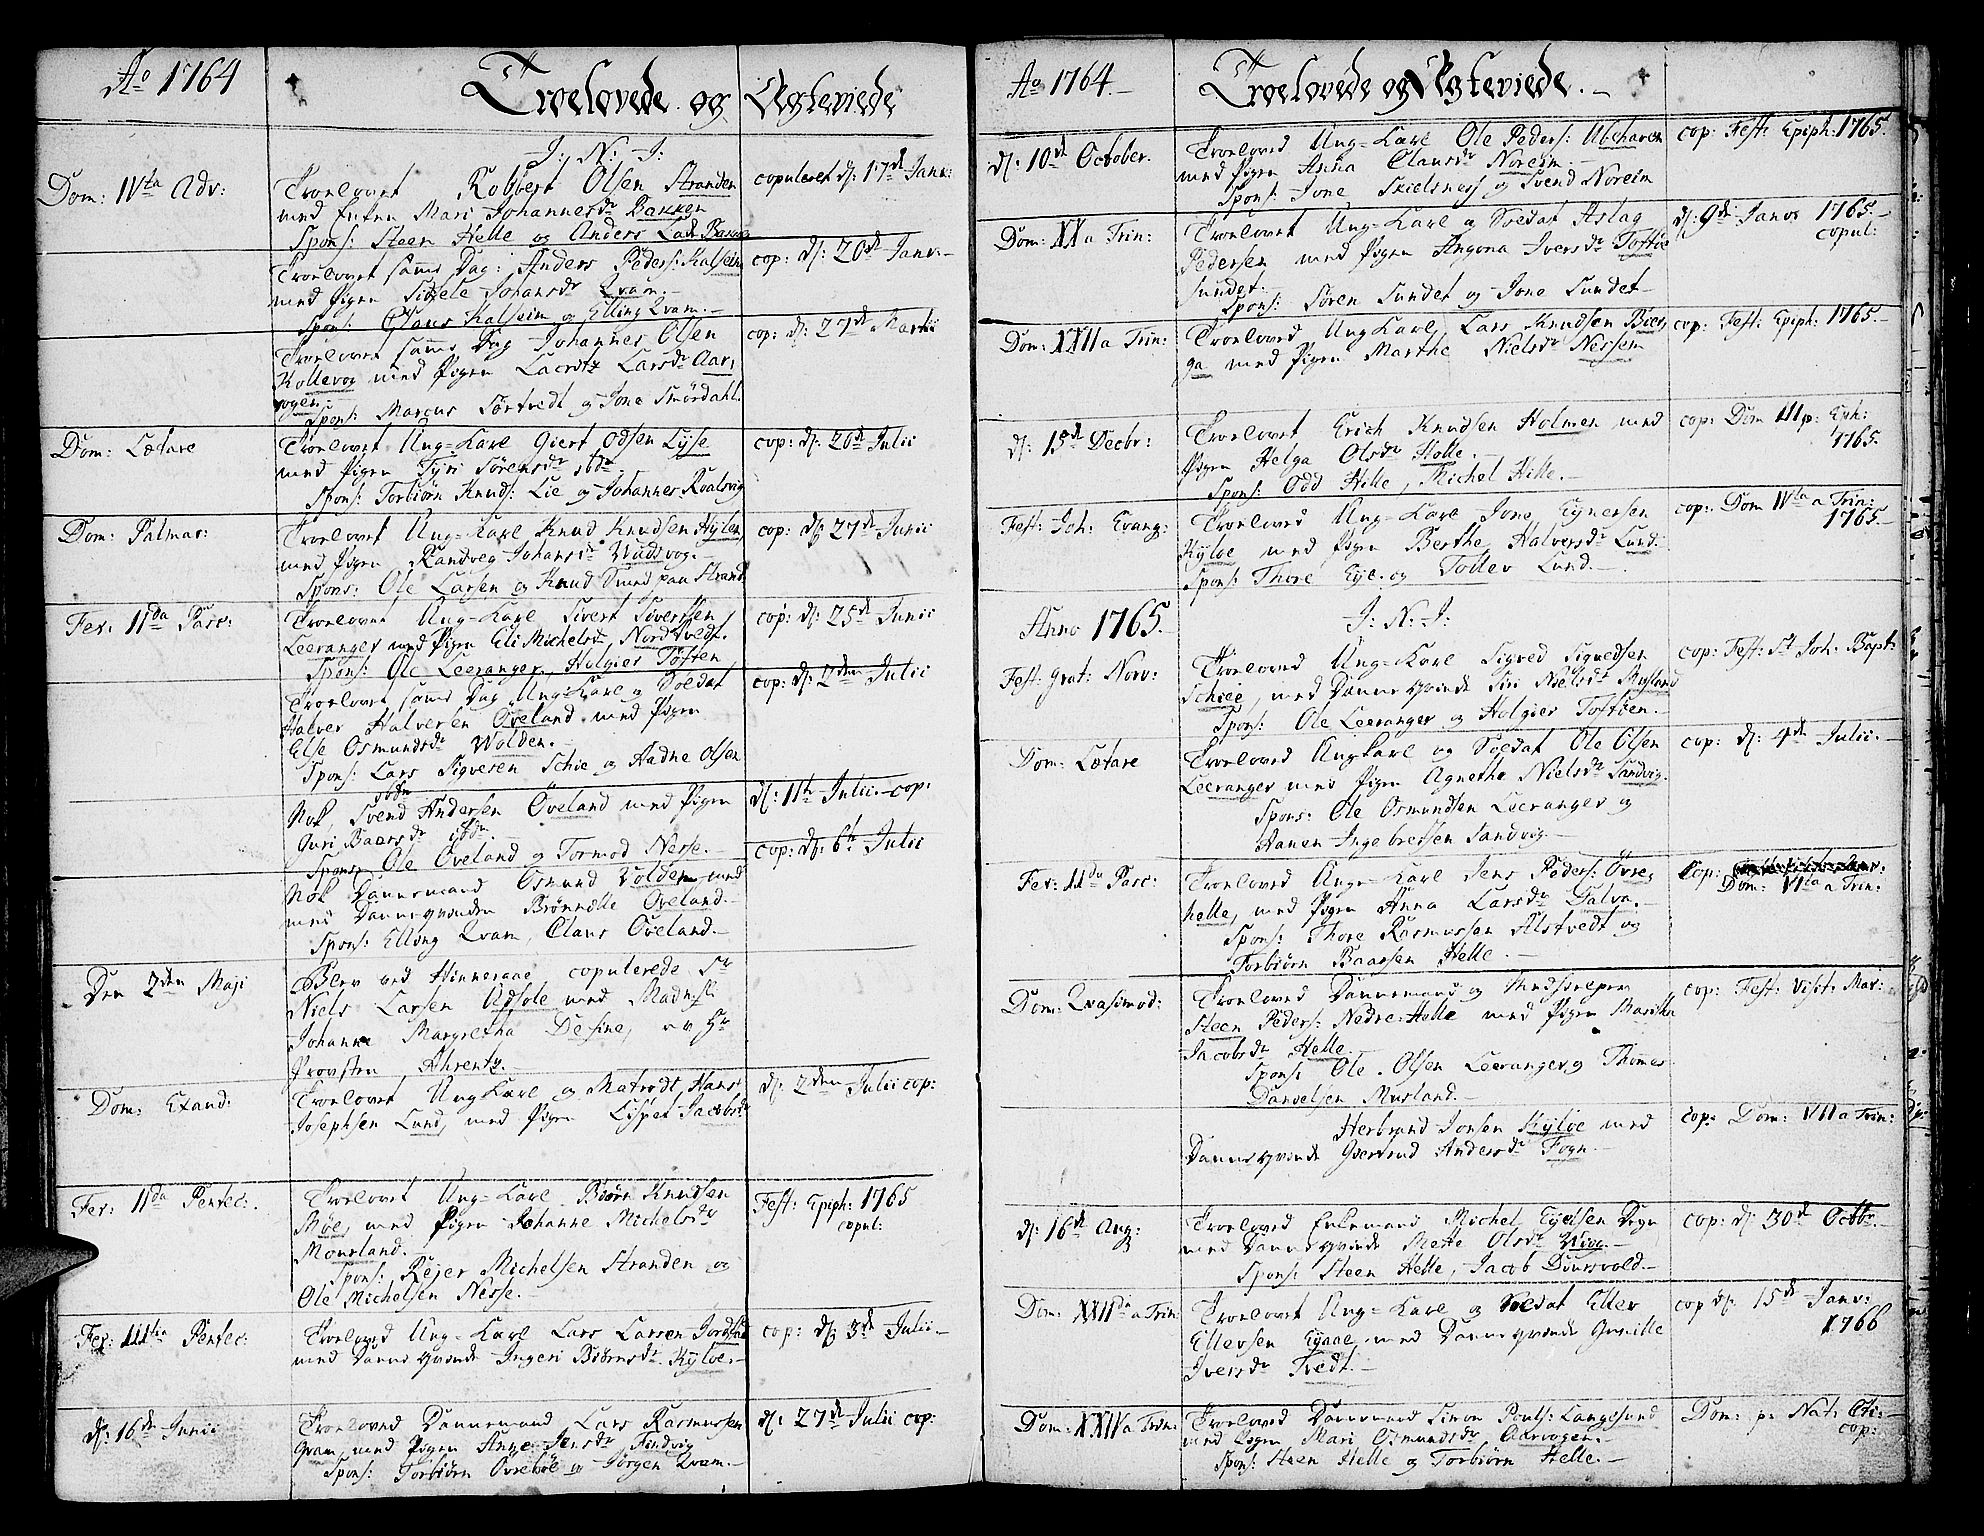 Ao 1764
Troelovede og Ægteviede
J: N: J:
Dom: IVta Adv:
Troelovet Robbert Olsen Stranden
med Enken Mari Johannesdr Bakken
Spons: Steen Helle og Anders
copuleret d: 17de Janv:
Troelovet samme Dag: Anders Peders: Kalseim
med Pigen Sidzele Johansdr Qvam.
Spons: Claus Kalseim og Elling Qvam.
cop: d: 20de Janv.
Troelovet samme Dag Johannes Olsen
Kollevog med Pigen Larsdr Aar,
vogen.
Spons: Marcus Sørtvedt og Jone Smørdahl.
cop: d: 27de Martii
Dom: Lætare
Troelovet Ung-Karl Giert Odsen Lyse
med Pigen Tyri Sørensdr ibdm
Spons: Torbiørn Knuds: Lie og Johannes Roalsvig
cop: d: 20de Julii
Dom: Palmar:
Troelovet Ung-Karl Knud Knudsen Hylen
med Pigen Randveg Johansdr Wudsvog.
Spons: Ole Larsen og Knud Smed paa Strand
cop: d: 27de Junii
Fer: IIda Pasc:
Troelovet Ung-Karl Sivert Sivertsen
Leeranger med Pigen Eli Michelsdr Nordtvedt.
Spons: Ole Leeranger, Holgier Tøften
cop: d: 25de Junii
Troelovet samme Dag Ung-Karl og Soldat
Halver Halversen Øveland med Pigen
Else Osmundsdr Wolden.
Spons: Lars Sigversen Schie og Aadne Olsen
ibdm
cop: d: 2den Julii
Nok Svend Andersen Øveland med Pigen
Guri Baarsdr ibdm.
Spons: Ole Øveland og Tormod Nesse.
d: 11te Julii cop:
Nok Dannemand Osmund Volden med
med Danneqvinden Brønnelle Øveland.
Spons: Elling Qvam, Claus Øveland.
cop: d: 6te Julii
Den 2den Maji
Blev ved Hinneraae copulerede Sr
Niels Larsen Udsole med Madmsl:
Johanne Margretha Desine, av Hr
Provsten Ahrentz.
Dom: Exaud:
Troelovet Ung Karl og Matrodt Hans
Josephsen Lund, med Pigen Lispet Jacobsdr
d: 2den Julii cop:
Fer: IIda Pentec:
Troelovet Ung-Karl Biørn Knudsen
Møe, med Pigen Johanne Michelsdr
Mousland.
Spons: Rejer Michelsen Stranden og
Ole Michelsen Nesse.
Fest: Epiph: 1765
copul:
Fer: IIItia Pentec:
Troeloved Ung-Karl Lars Larsen
med Dannesqvinde Ingeri Biørnsdr Kylve.
cop: d: 3de Julii
d: 16de Junii
Troeloved Dannemand Lars Rasmussen
Gram, med Pigen Anne Jensdr Findvig
Spons: Torbiørn Øvrebøe og Jørgen Qvam.
d: 27de Julii cop:
Ao 1764.
Troelovede og Ægteviede.
d: 10de October.
Troeloved Ung-Karl Ole Peders: Ubeharen
med Pigen Anna Clausdr Noreim.
Spons: Jone Skielsness og Svend Noreim
cop: Fest: Epiph: 1765.
Dom: XXa Trin:
Troelovet Ung-Karl og Soldat Aslag
Pedersen med Pigen Angona Iversdr Toftøe
Sundet.
Spons: Søren Sundet og Jone Sundet
d: 9de Janv 1765.
copul:
Dom: XXIIa Trin:
Troelovet Ung Karl, Lars Knudsen Bier,
ga med Pigen Marthe Nielsdr Nessem
cop: Fest: Epiph: 1765.
d: 15de Decbr:
Troelovet Erich Knudsen Holmen med
Pigen Helga Olsdr Helle.
Spons: Odd Helle, Michel Helle.
cop: Dom IIIp: Eph:
1765.
Fest: Joh: Evang:
Troeloved Ung-Karl Jone Eyversen
Kylve med Pigen Berthe Halversdr Lund.
Spons: Thore Eye og Tollev Lund.
cop: Dom IVta a Trin:
1765.
Anno 1765.
J: N: J:
Fest: Grat: Norv:
Troeloved Ung-Karl Sigved Sigvedsen
Schiee, med Dannesqvinde Siri Nielsdr Musland
Spons: Ole Leeranger og Holgier Toftøen.
cop: Fest: St Joh: Bapt:
Dom: Lætare
Troeloved Ungkarl og Soldat Ole Olsen
Leeranger med Pigen Agnethe Nielsdr Sandvig.
Spons: Ole Osmundsen Leeranger og
Hanen Ingebretsen Sandvig.
cop: d: 4de Julii.
Fer: IIda Pasc:
Troeloved Ung-Karl Jens Peders: Øvre,
helle, med Pigen Anna Larsdr Talva.
Spons: Thore Rasmussen Alstvedt og
Torbiørn Baarsen Helle.
Cop:
Dom: VIta a Trin:
Dom: Qvasimod:
Troeloved Dannemand og
Steen Peders: Nedre-Helle med Pigen Maritha
Jacobsdr Helle.
Spons: Ole Olsen Leeranger og Thomas
Danielsen Musland.
cop: Fest: Visit: Mar:
Herbrand Jonsen Kylve med
Dannesqvinde Giertrud Andersdr Fogn.
cop: Dom: VII a Trin:
d: 16de Aug:
Troeloved Enkemand Michel Eyelsen Degn
med Dannesqvinde Mette Olsdr Wiig.
Spons: Steen Helle, Jacob Duursvold.
cop: d: 30de Octbr.
Dom: XXIIda a Trin:
Troelovet Ung-Karl og Soldat Ellev
Ellevsen Eyaae, med Dannesqvinde Gunille
Iversdr Tvedt.
cop d: 15de Janv:
1766
Dom: XXIVa Trin:
Troeloved Dannemand Simon Pouls: Langesund
med Pigen Mari Osmundsdr Aarvogen.
Spons: Steen Helle og Torbiørn Helle.
Dom: p: Nat: Cti:
cop: